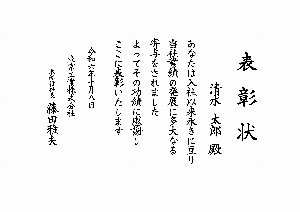 表彰状
清水 太郎 殿
あなたは入社以来永きに亘り
当社業績の発展に多大なる
寄与をされました
よってその功績に感謝し
ここに表彰いたします
令和六年十月八日
株式会社
藤田雅夫